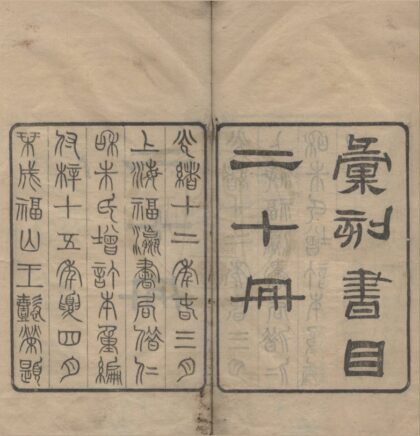 彙刻書目
二十冊
光緒十二年春三月
上海福瀛書局借仁
龢朱氏增訂本重編
付梓十五年夏四月
栞成福山王懿榮題